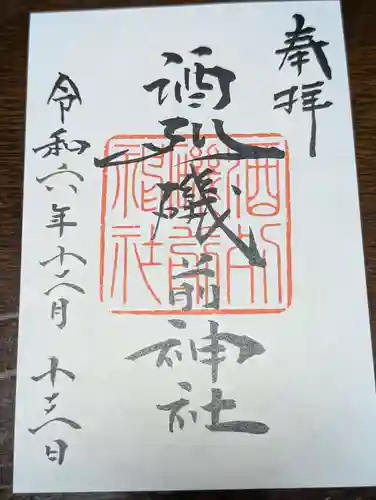 奉拝
酒列磯前神社
酒列
磯前
神社
令和六年十二月 十六日